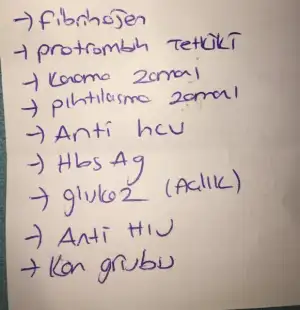 → fibrinojen
→ protrombin Tetkiki
→ kanama zamanı
→ pıhtılaşma zamanı
→ Anti hcv
→ Hbs Ag
→ glukoz (Açlık)
→ Anti HIV
→ Kan grubu